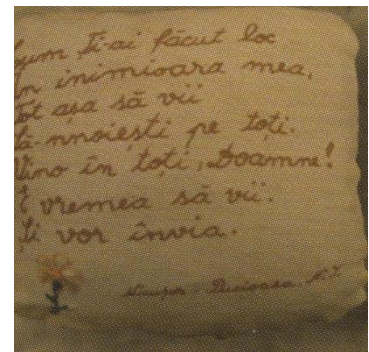 Cum Ți-ai făcut loc
în inimioara mea,
Tot așa să vii
Să-nnoiești pe toți.
Vino în toți, Doamne!
E vremea să vii.
Și vor învia.